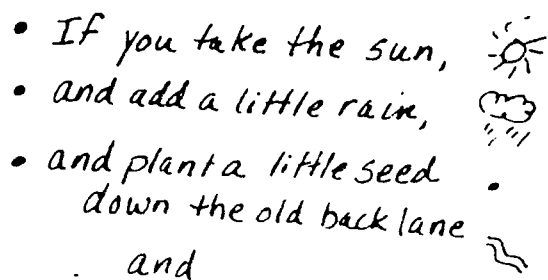 • If you take the sun,
• and add a little rain,
• and plant a little seed
down the old back lane
and